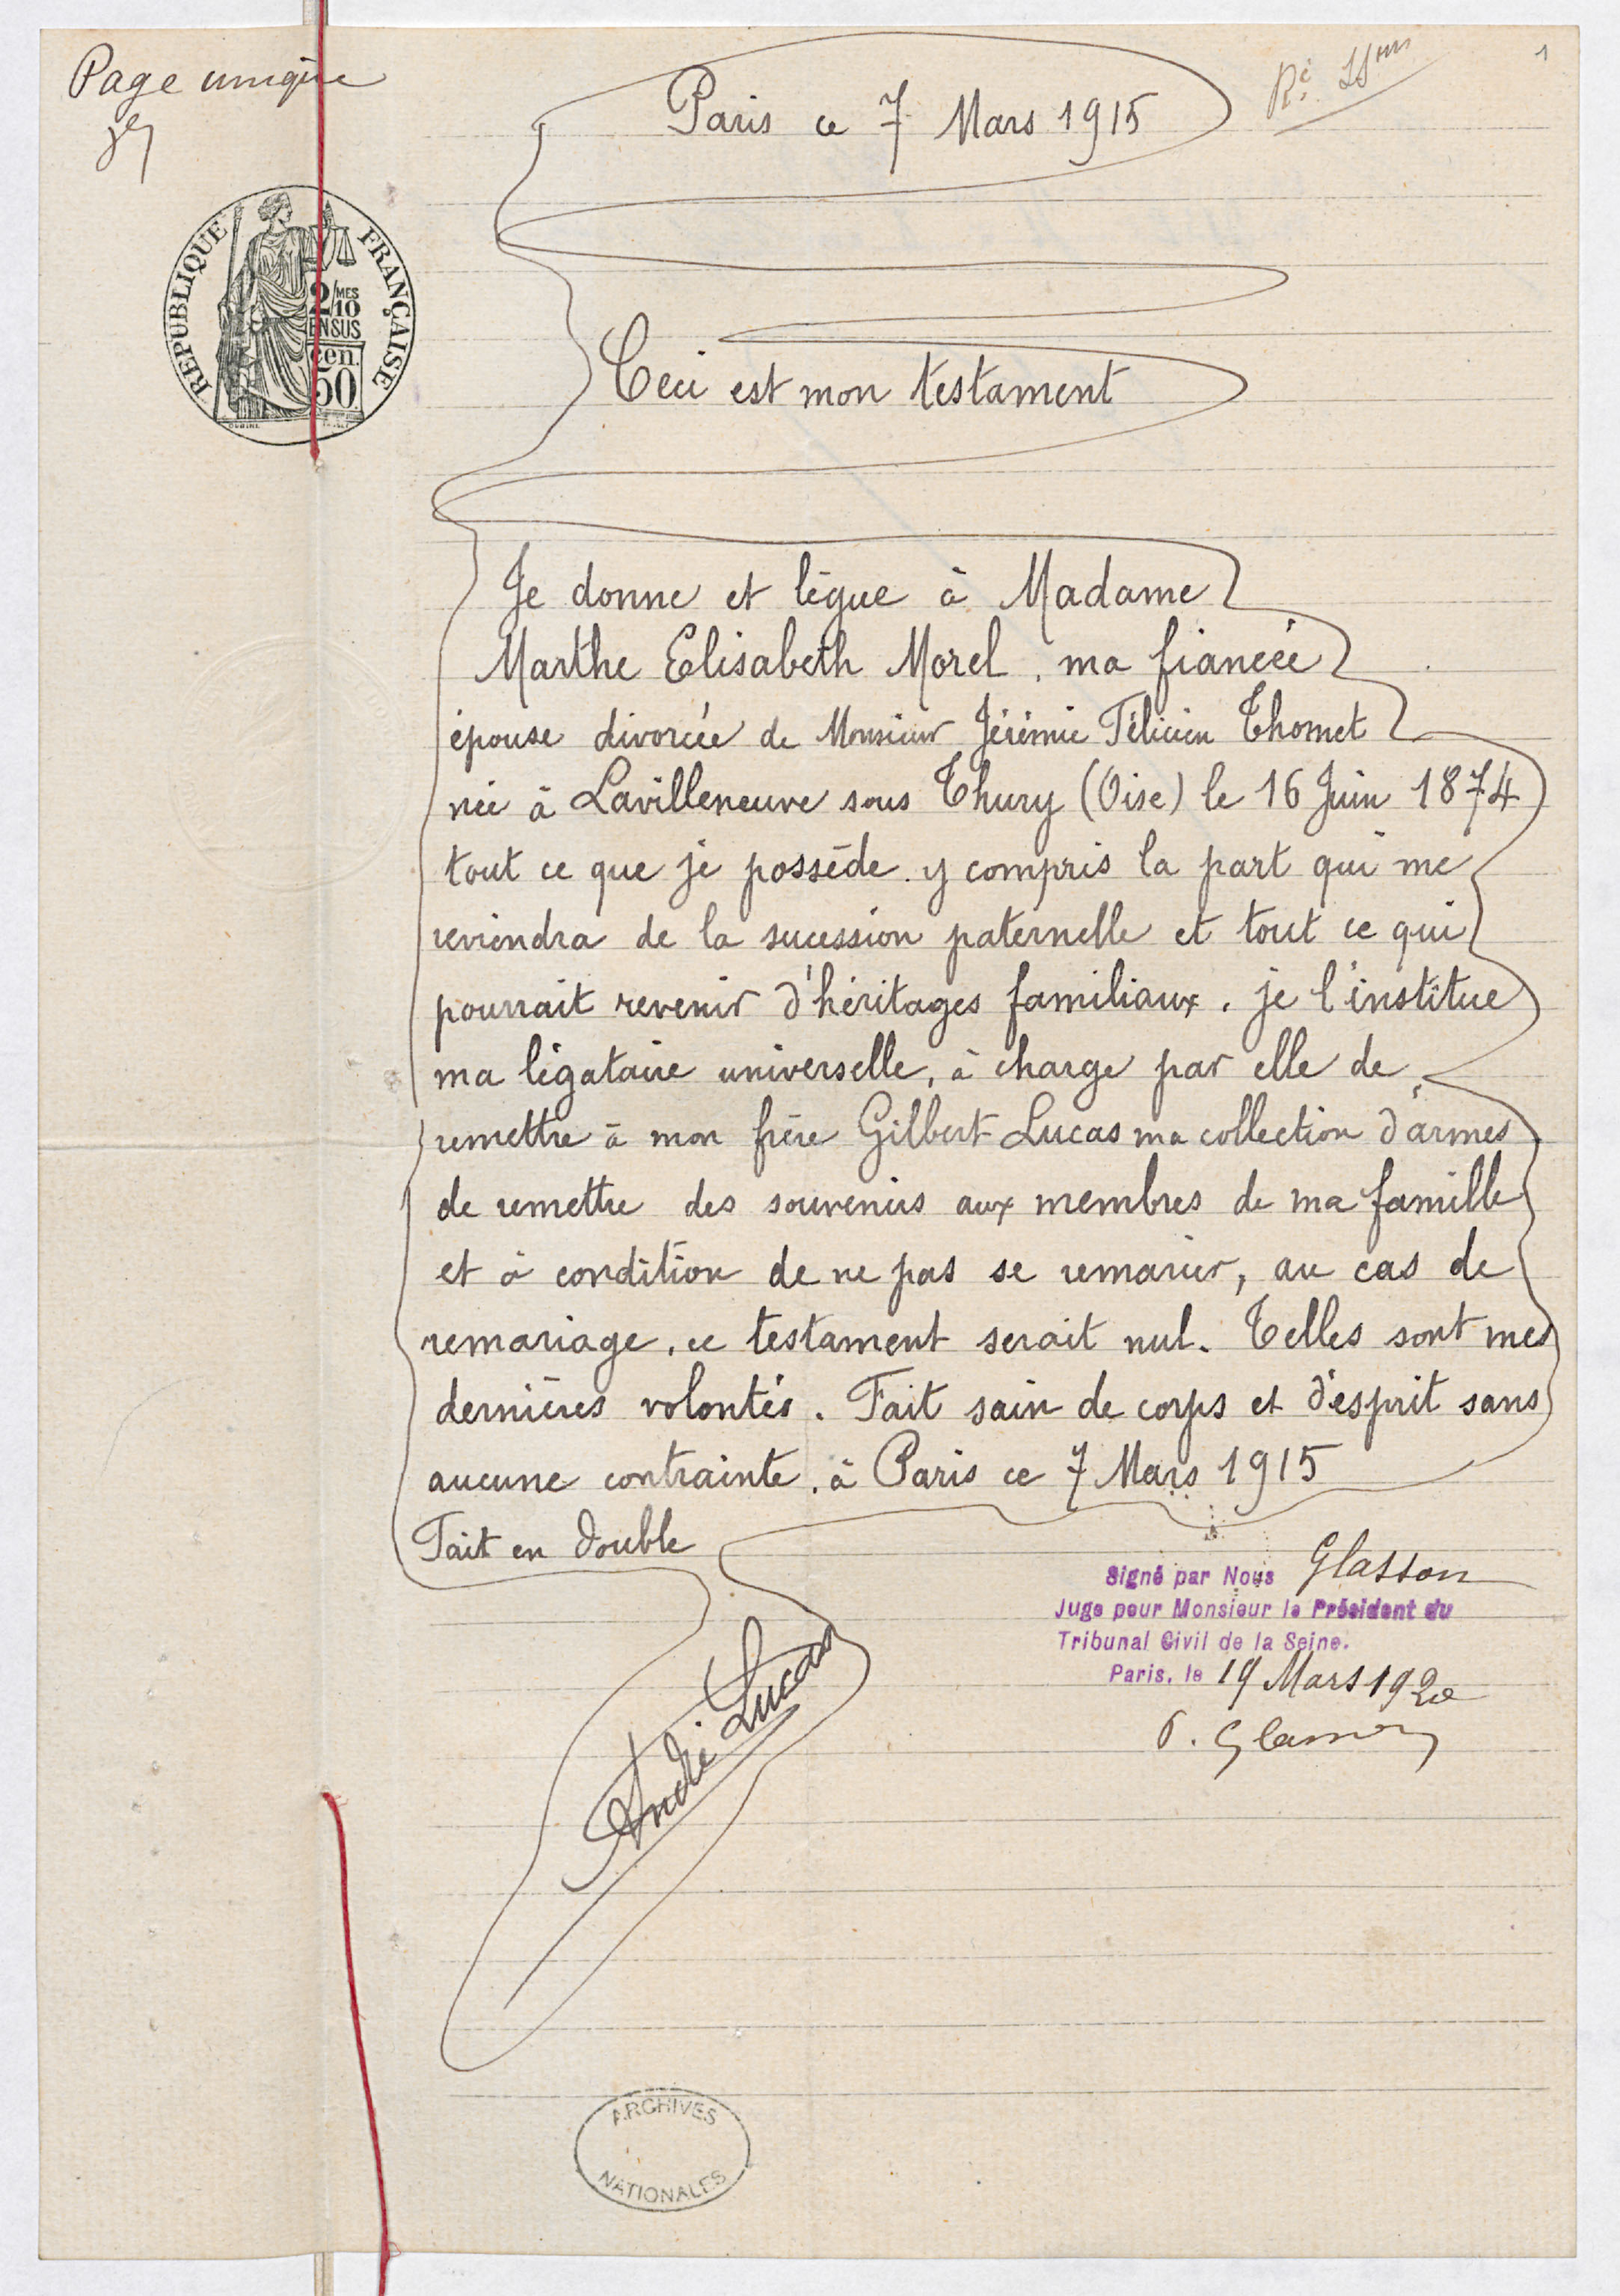 Page unique
1
Paris ce 7 Mars 1915
RÉPUBLIQUE FRANÇAISE
2/10 MES
EN SUS
cen.
50
Ceci est mon testament
Je donne et lègue à Madame
Marthe Elisabeth Morel. ma fiancée
épouse divorcée de Monsieur Jérémie Félicien Thomet
née à Lavilleneuve sous Thury (Oise) le 16 Juin 1874
tout ce que je possède. y compris la part qui me
reviendra de la sucession paternelle et tout ce qui
pourrait revenir d'héritages familiaux. je l'institue
ma légataire universelle, à charge par elle de
remettre à mon frère Gilbert Lucas ma collection d'armes
de remettre des souvenirs aux membres de ma famille
et à condition de ne pas se remarier, au cas de
remariage. ce testament serait nul. Telles sont mes
dernières volontés. Fait sain de corps et d'esprit sans
aucune contrainte. à Paris ce 7 Mars 1915
Fait en double
Signé par Nous Glasson
Juge pour Monsieur le Président du
Tribunal Civil de la Seine.
Paris, le 19 Mars 1920
André Lucas
P. Glasson
ARCHIVES
NATIONALES